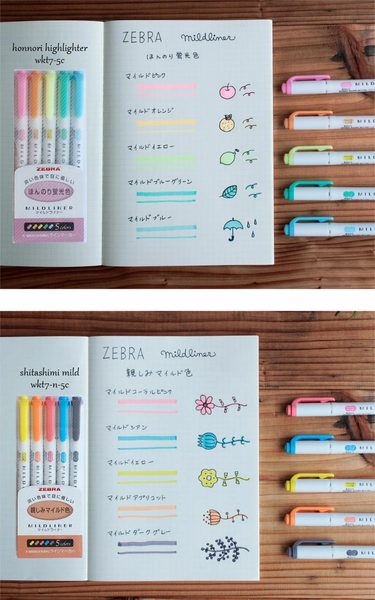 honnori highlighter
wkt7-5c
ZEBRA
淡い色味で目に優しい
ほんのり蛍光色
MILDLINER
マイルドライナー
5 colors
ZEBRA Mildliner
ほんのり蛍光色
マイルドピンク
マイルドオレンジ
マイルドイエロー
マイルドブルーグリーン
マイルドブルー
shitashimi mild
wkt7-n-5c
ZEBRA
淡い色味で目に優しい
親しみマイルド色
MILDLINER
マイルドライナー
5 colors
ZEBRA mildliner
親しみマイルド色
マイルドコーラルピンク
マイルドシアン
マイルドイエロー
マイルドアプリコット
マイルドダークグレー